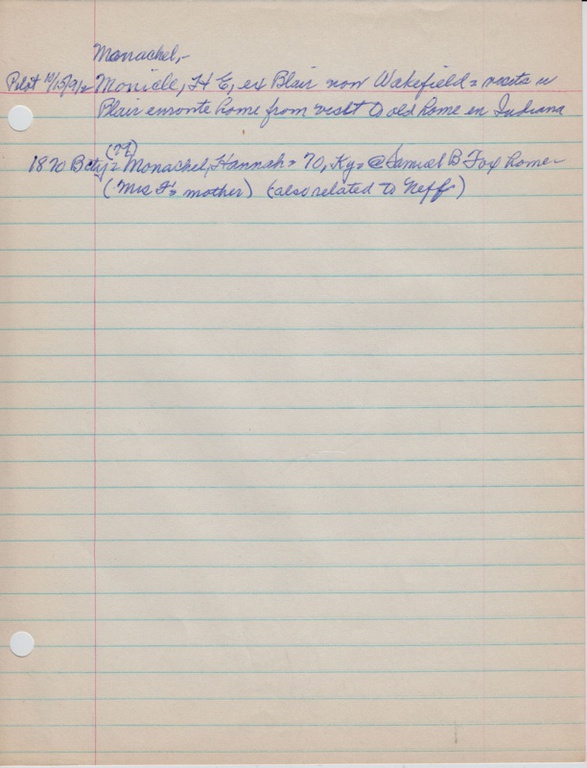 Monachel,-
Pilot 10/15/91= Monicle, H E, ex Blair now Wakefield = visits in
Blair enroute home from visit @ old home in Indiana
(?)
1870 = Monachel, Hannah = 70, Ky = @ Samuel B Fox home -
(Mrs F's mother) (also related to Neffs)